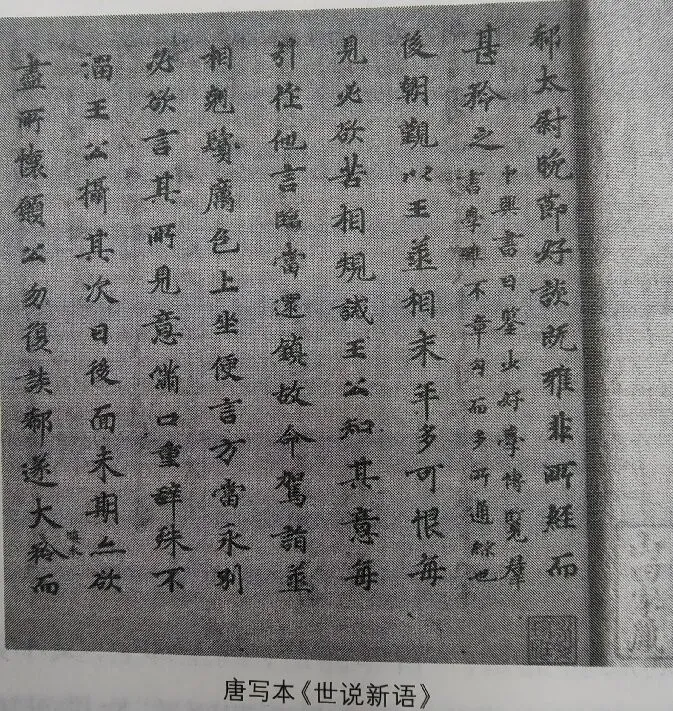 郗太尉晚節好談既雅非所經而
甚矜之
中興書曰鑒少好學博覽羣
書學雖不章句而多所通綜也
後朝覲以王丞相末年多可恨每
見必欲苦相規誡王公知其意每
引作他言臨當還鎮故命駕詣丞
相翹鬚厲色上坐便言方當永別
必欲言其所見意滿口重辭殊不
溜王公攝其次曰後面未期亦欲
盡所懷願公勿復談郗遂大矜而
唐写本《世说新语》